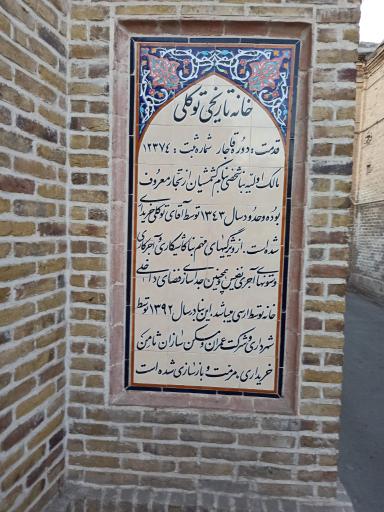 خانه تاریخی توکلی
قدمت : دوره قاجار شماره ثبت : ۱۲۳۷۴
مالک اولیه بنا شخصی بنام کشمشیان از تجار معروف
بوده و حدود سال ۱۳۴۳ توسط آقای توکلی خریداری
شده است. از ویژگیهای مهم بنا کاشیکاری و آجرکاری
و ستونهای آجری نفیس و همچنین جداسازی فضای داخلی
خانه توسط ارسی میباشد. این بنا در سال ۱۳۹۲ توسط
شهرداری و شرکت عمران و مسکن سازان ثامن
خریداری ، مرمت و بازسازی شده است